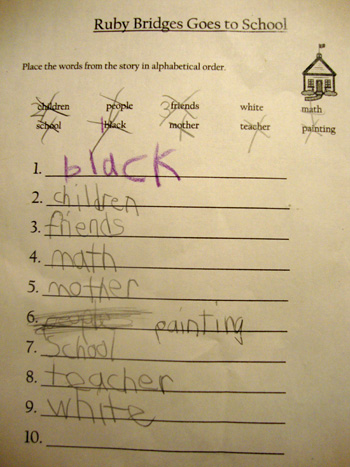 Ruby Bridges Goes to School
Place the words from the story in alphabetical order.
children people friends white math
school black mother teacher painting
1. black
2. children
3. friends
4. math
5. mother
6. people painting
7. School
8. teacher
9. white
10.